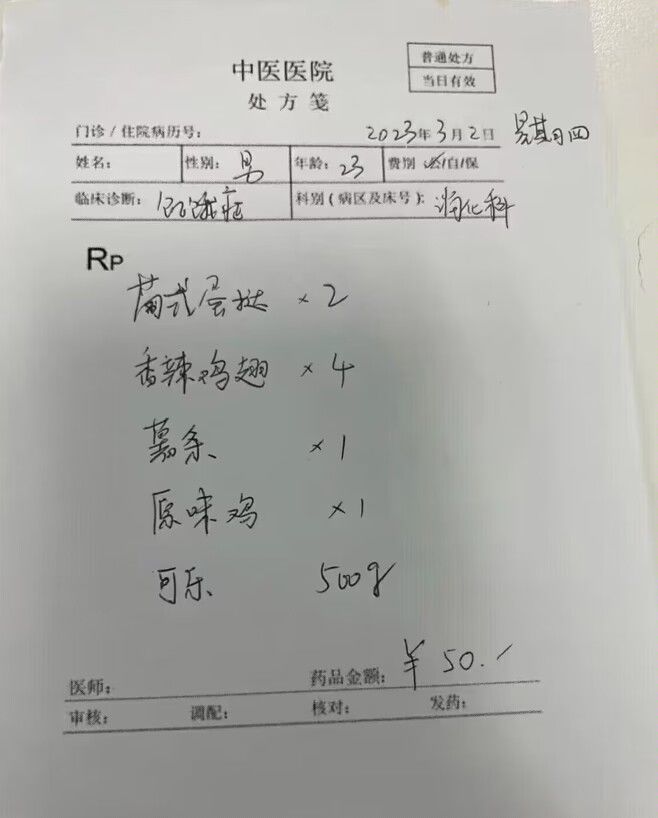 普通处方
当日有效
中医医院
处方笺
门诊/住院病历号: 2023年3月2日 星期四
姓名: 性别: 男 年龄: 23 费别 公/自/保
临床诊断: 饥饿症 科别(病区及床号): 消化科
RP
葡式蛋挞 ×2
香辣鸡翅 ×4
薯条 ×1
原味鸡 ×1
可乐 500g
医师: 药品金额: ¥50.
审核: 调配: 核对: 发药: